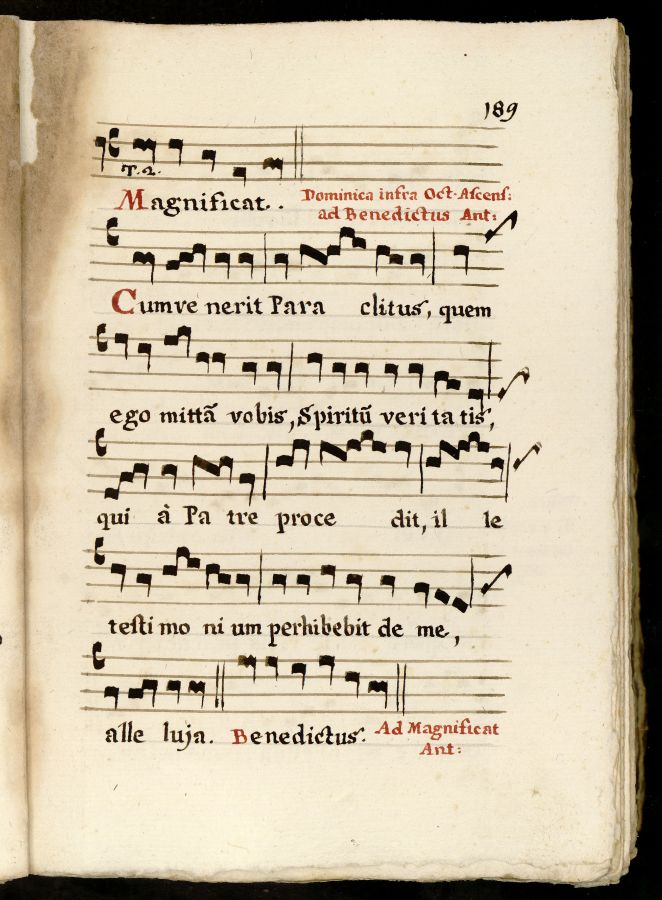 189
T. 2.
Magnificat. . Dominica infra Oct. Ascens:
ad Benedictus Ant:
Cumve nerit Para clitus, quem
ego mittã vobis, Spiritũ veri ta tis,
qui à Pa tre proce dit, il le
testi mo ni um perhibebit de me,
alle luja. Benedictus. Ad Magnificat
Ant: